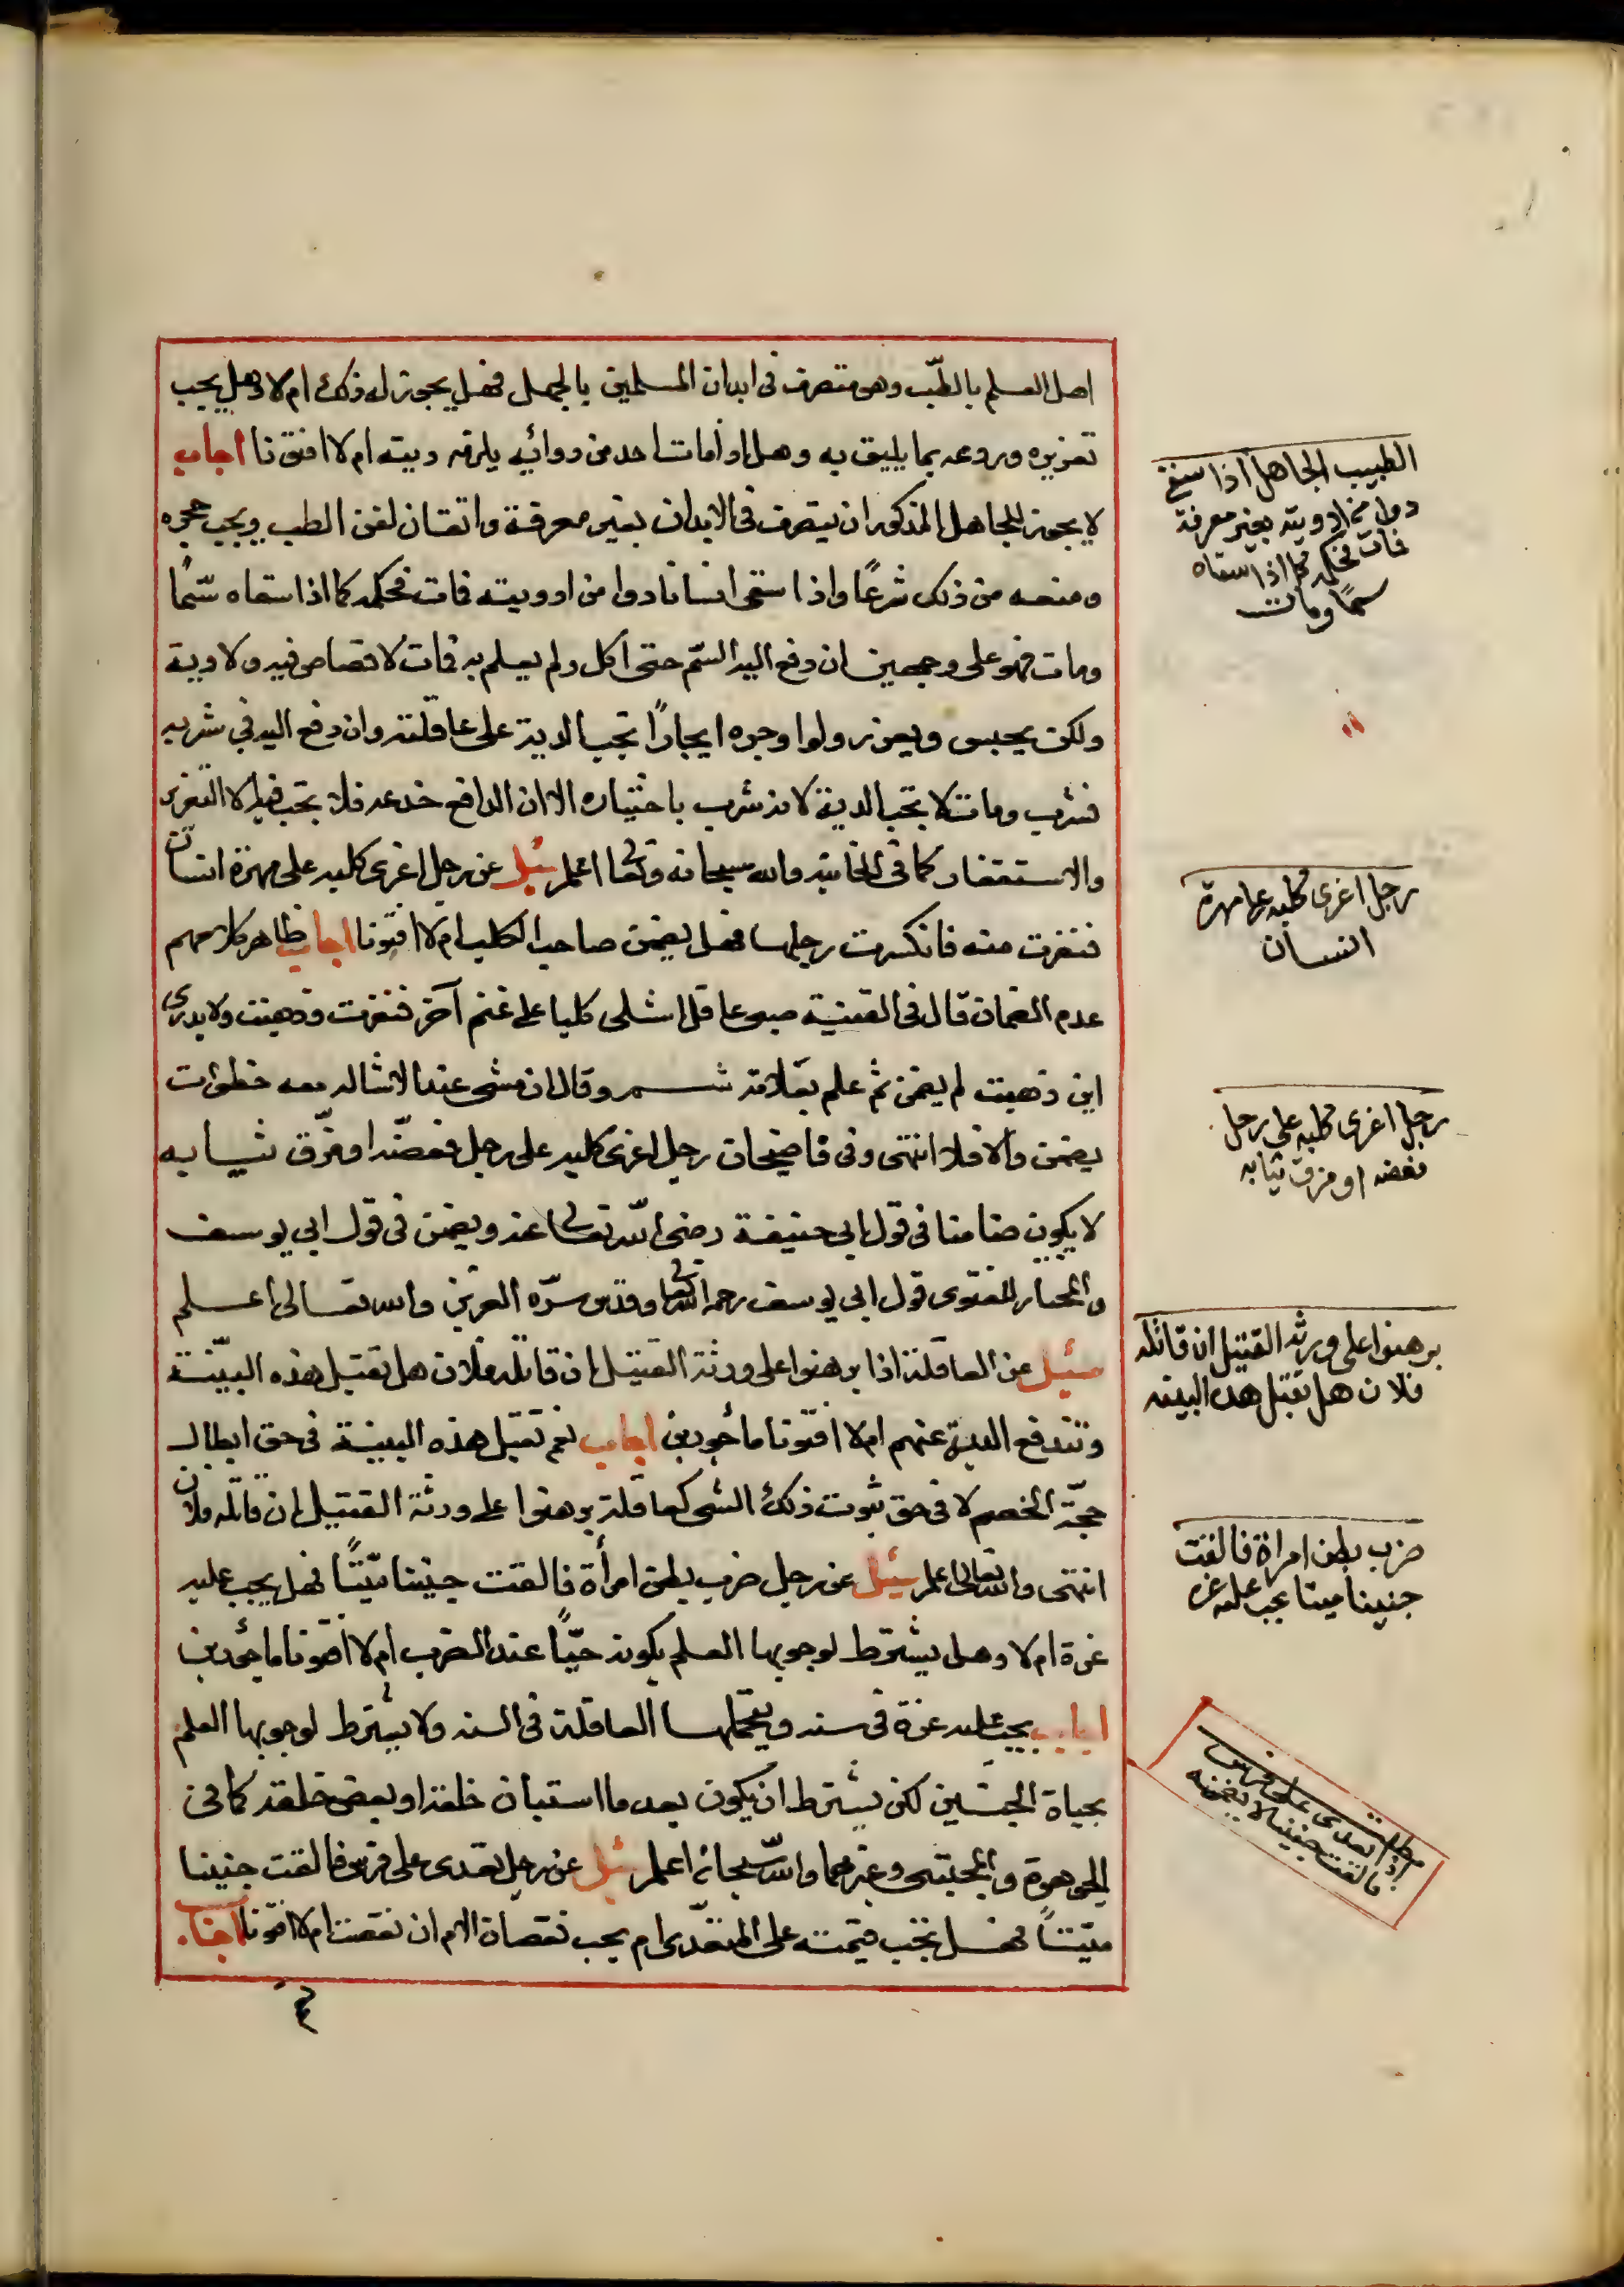 اهل العلم بالطب وهو متصرف في ابدان المسلمين بالجهل فهل يجوز له ذلك ام لا وهل يجب
تعزيره وردعه بما يليق به وهل اذا مات احد من دوائه يلزمه ديته ام لا افتونا اجاب
لا يجوز للجاهل المذكور ان يتصرف في الابدان بغير معرفة واتقان لفن الطب ويجب حجره
ومنعه من ذلك شرعًا واذا سقى انسانا دوا من ادويته فمات فحكمه كما اذا سقاه سمًا
ومات فهو على وجهين ان دفع اليه السّم حتى اكل ولم يعلم به فمات لا قصاص فيه ولا دية
ولكن يحبس ويعزر ولو اوجره ايجارًا تجب الدية على عاقلته وان دفع اليه في شربه
فشرب ومات لا تجب الدية لانه شرب باختياره الا ان الدافع خدعه فلا يجب فيه الا التعزير
والاستغفار كما في الخانية والله سبحانه وتعالى اعلم سئل عن رجل اغرى كلبه على مهرة انسان
فنفرت منه فانكسرت رجلها فهل يضمن صاحب الكلب ام لا افتونا اجاب ظاهر كلامهم
عدم الضمان قال في القنية صبى عاقل اشلى كلبا على غنم آخر فنفرت وذهبت ولا يدرى
اين ذهبت لم يضمن ثم علم بعلامة شم وقال ان مشى عند الاشاله معه خطوات
يضمن والا فلا انتهى وفى قاضيخان رجل اغرى كلبه على رجل فعضّه او مزّق ثيابه
لا يكون ضامنا فى قول ابى حنيفة رضى الله تعالى عنه ويضمن فى قول ابى يوسف
والمختار للفتوى قول ابى يوسف رحمه الله تعالى وقدس سرّه العزيز والله تعالى اعلم
سئل عن العاقلة اذا برهنوا على ورثة القتيل ان قاتله فلان هل تقبل هذه البيّنة
وتندفع الدية عنهم ام لا افتونا مأجورين اجاب نعم تقبل هذه البينة فى حق ابطال
حجّة الخصم لا فى حق ثبوت ذلك الشى كعاقلة برهنوا على ورثة القتيل ان قاتله فلان
انتهى والله تعالى اعلم سئل عن رجل ضرب بطن امرأة فالقت جنينا ميّتًا فهل يجب عليه
غرة ام لا وهل يشترط لوجوبها العلم بكونه حيًّا عند الضرب ام لا افتونا مأجورين
اجاب يجب عليه غرة فى سنة ويتحملها العاقلة فى السنة ولا يشترط لوجوبها العلم
بحياة الجنين لكن يشترط ان يكون بعد ما استبان خلقه او بعض خلقه كما فى
الجوهرة والمجتبى وغيرهما والله سبحانه اعلم سئل عن رجل تعدى على فرس فالقت جنينا
ميّتًا فهل تجب قيمته على المتعدّى ام يجب نقصان الام ان نقصت ام لا افتونا اجاب
الطبيب الجاهل اذا سقى
دوا من ادويته بغير معرفة
فمات فحكمه كما اذا سقاه
سمًا ومات
رجل اغرى كلبه على مهرة
انسان
رجل اغرى كلبه على رجل
فعضه او مزق ثيابه
برهنوا على ورثة القتيل ان قاتله
فلان هل تقبل هذه البينه
ضرب بطن امراة فالقت
جنينا ميتا يجب عليه غره
مطلب
اذا تعدى على فرس
فالقت جنينا لا يضمنه